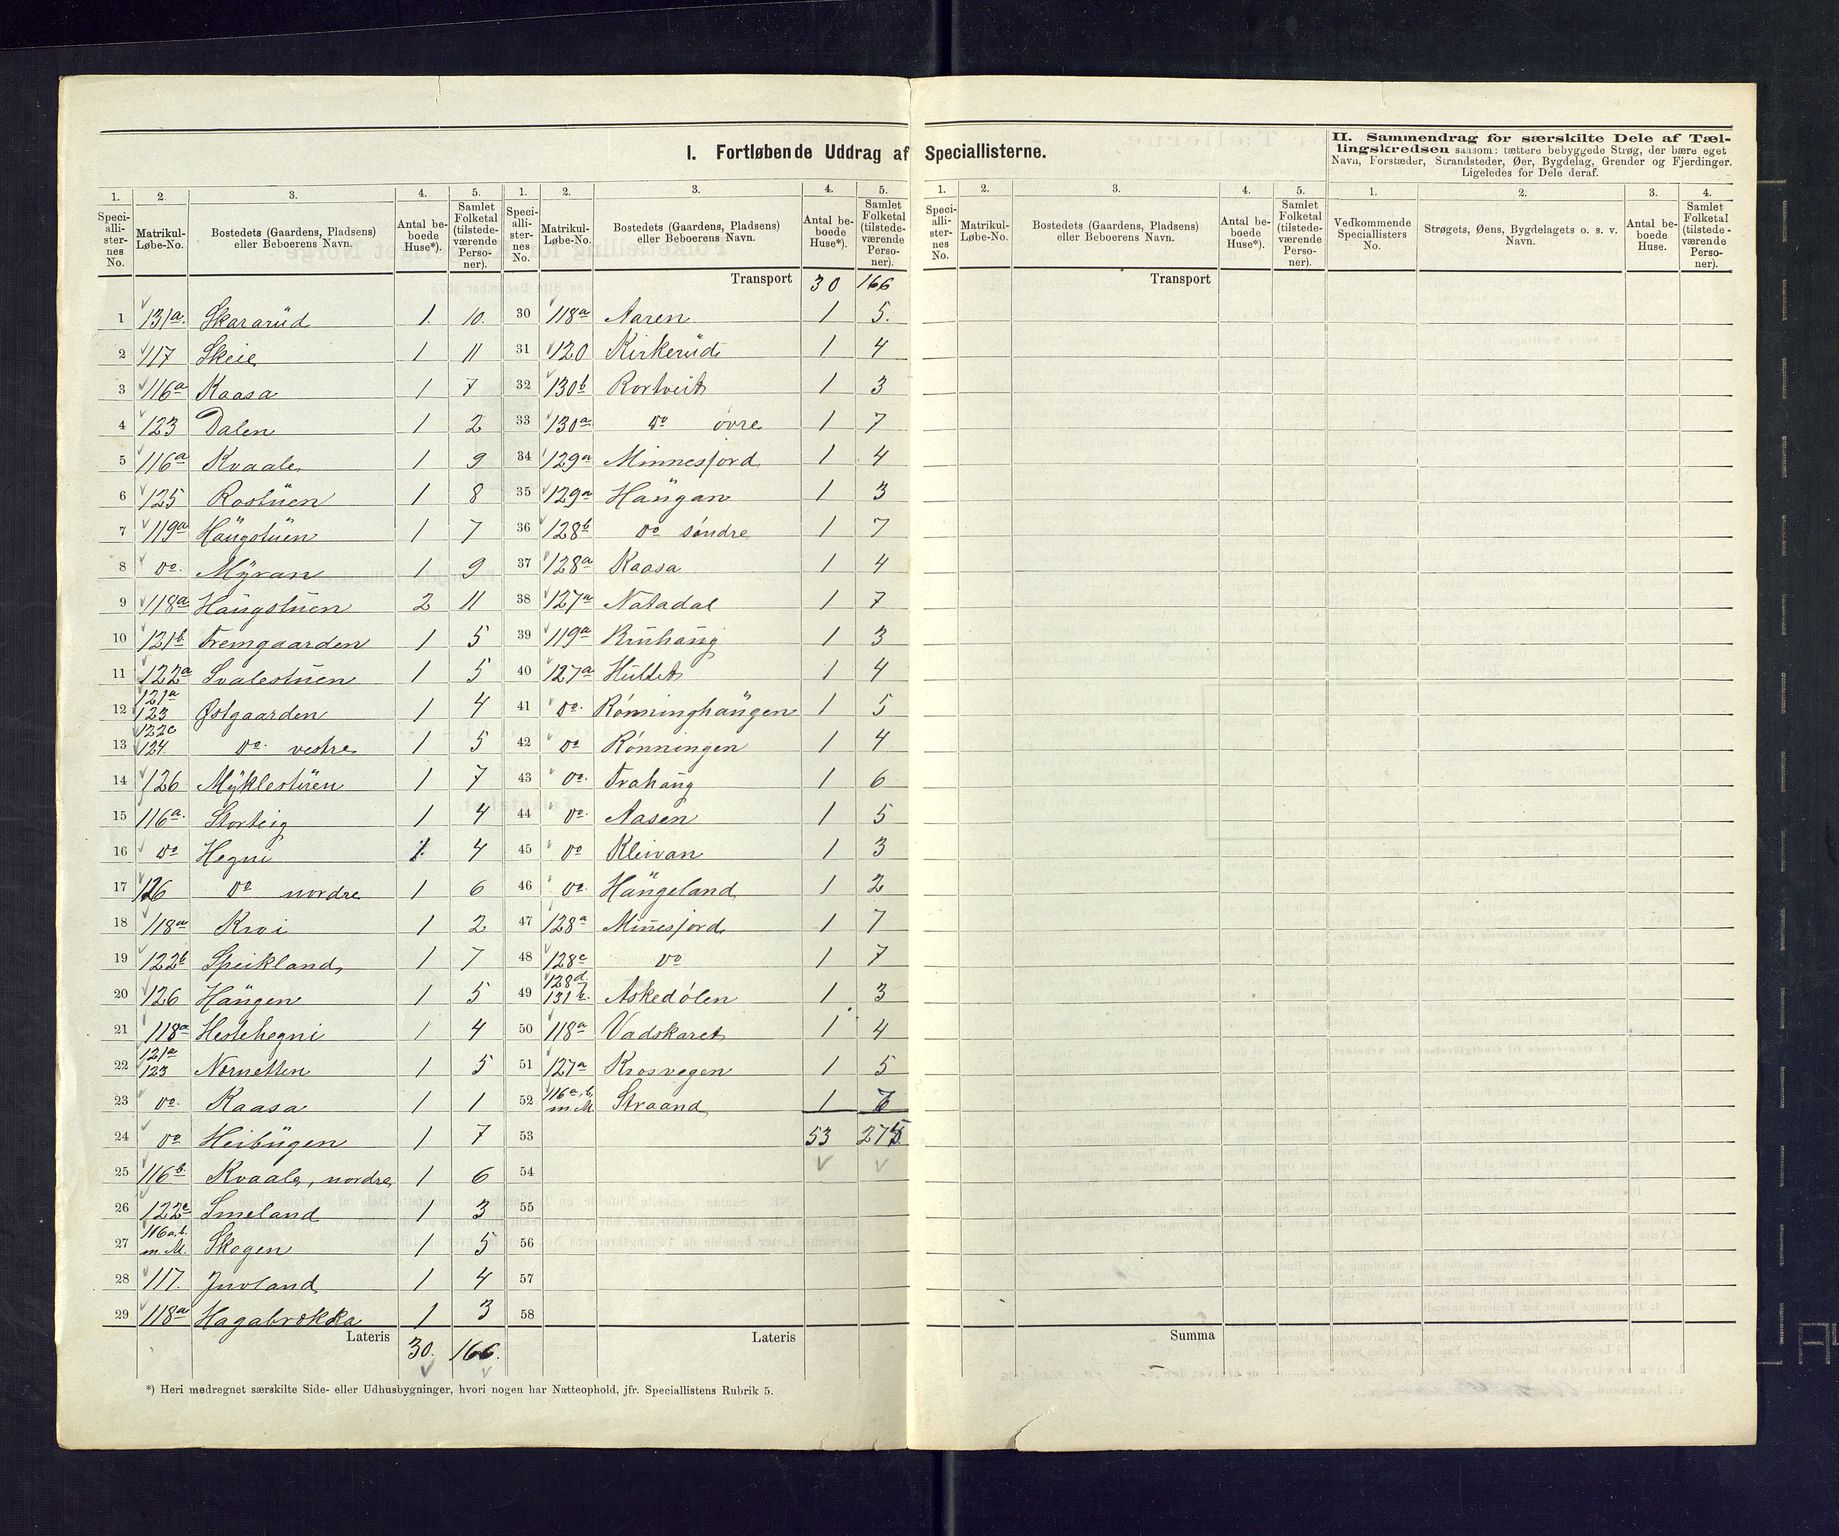 I. Fortløbende Uddrag af Speciallisterne.
II. Sammendrag for særskilte Dele af Tæl-
lingskredsen saasom: tættere bebyggede Strøg, der bære eget
Navn, Forstæder, Strandsteder, Øer, Bygdelag, Grender og Fjerdinger.
Ligeledes for Dele deraf.
1. 2 3. 4. 5.
Speci-allister-nes No. Matrikul-Løbe-No. Bostedets (Gaardens, Pladsens) eller Beboerens Navn. Antal be-boede Huse*). Samlet Folketal (tilstede-værende Perso-ner).
1 131a. Skararüd 1. 10.
2 117 Skeie 1 11
3 116a Kaasa 1 7
4 123 Dalen 1 2
5 116a Kvaale 1 9
6 125 Rostüen 1 8
7 119a Haügstüen 1 7
8 do. Myran 1 9
9 118a Haugstuen 2 11
10 121b Fremgaarden 1 5
11 122a Svalestuen 1 5
12 121a 123 Østgaarden 1 4
13 122c 124. do. vestre 1 5
14 126 Myklestüen 1 7
15 116a. Storteig 1 4
16 do Hegni 1. 4
17 126 do nordre 1 6
18 118a Kroi 1 2
19 122b Speikland 1 7
20 126 Haugen 1 5
21 118a Hestehegni 1 4
22 121a 123 Nørnetten 1 5
23 do. Kaasa 1 1
24 do Heibügen 1 7
25 116b. Kvaale, nordre 1 6
26 122c Smeland 1 3
27 116a,b. m.M. Skogen 1 5
28 117. Juvland 1 4
29 118a Hagabrokka 1 3
Lateris 30. 166.
1. 2. 3. 4. 5.
Speci-allister-nes No. Matrikul-Løbe-No. Bostedets (Gaardens, Pladsens) eller Beboerens Navn. Antal be-boede Huse*). Samlet Folketal (tilstede-værende Perso-ner).
Transport 30 166
30 118a Aaren 1 5.
31 120 Kirkerüd 1 4
32 130b Rortveit 1 3
33 130a do øvre 1 7
34 129a Minnesjord 1 4
35 129a Haügan 1 3
36 128b do søndre 1 7
37 128a Kaasa 1 4
38 127a Natadal 1 7
39 119a Bruhaug 1 3
40 127a Hultet 1 4
41 do. Rønninghaügen 1 5
42 do Rønningen 1 4
43 do. Trahaug 1 6
44 do. Aasen 1 5
45 do Kleivan 1 3
46 do. Haügeland 1 2
47 128a Minesjord 1 7
48 128c do 1 7
49 128d. 131b. Askedølen 1 3
50 118a Vadskaret 1 4
51 127a Krosvegen 1 5
52 116a,b, m.M Straand 1 7
53 53 275
54
55
56
57
58
Lateris
1. 2. 3. 4. 5.
Speci-allister-nes No. Matrikul-Løbe-No. Bostedets (Gaardens, Pladsens) eller Beboerens Navn. Antal be-boede Huse*). Samlet Folketal (tilstede-værende Perso-ner).
Transport
Summa
1. 2. 3. 4.
Vedkommende Speciallisters No. Strøgets, Øens, Bygdelagets o. s. v. Navn. Antal be-boede Huse. Samlet Folketal (tilstede-værende Perso-ner).
*) Heri medregnet særskilte Side- eller Udhusbygninger, hvori nogen har Natteophold, jfr. Speciallistens Rubrik 5.